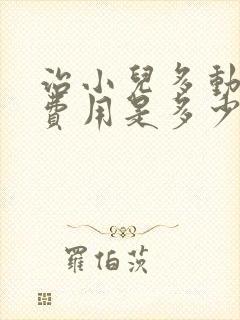 治小兒多動
費用是多少
羅伯茨